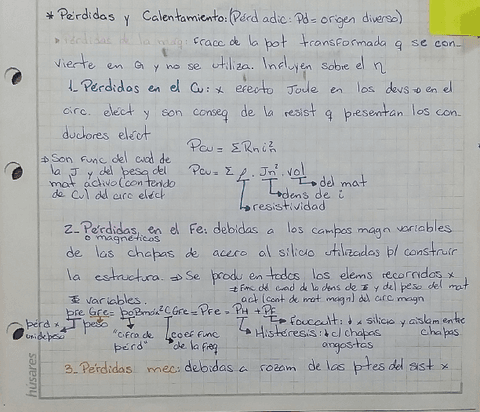 * Pérdidas y Calentamiento: (Pérd adic: Pd = origen diverso)
fracc de la pot transformada q se con-
vierte en G y no se utiliza. Influyen sobre el η
1_ Pérdidas en el Cu: x efecto Joule en los devs → en el
circ. eléct y son conseq de la resist q presentan los con-
ductores eléct
Pcu = Σ Rn in²
⇒ Son func del cuad de
la J y del peso del
mat activo (contenido
de Cu) del circ eléct
Pcu = Σ ρ . Jn² . vol
del mat
dens de i
resistividad
2_ Pérdidas en el Fe: debidas a los campos magn variables
o magnéticos
de las chapas de acero al silicio utilizadas p/ construir
la estructura. ⇒ Se produ en todos los elems recorridos x
Φ variables.
⇒ func del cuad de la dens de Φ y del peso del mat
act (cont de mat magn) del circ magn
pFe GFe = poBmax² C GFe = PFe = PH + PF
pérd x
unidepeso
peso
"cifra de
pérd"
coef func
de la freq
Foucault: ↓ x silicio y aislam entre
chapas
Histéresis: ↓ c/ chapas
angostas
3_ Pérdidas mec: debidas a rozam de las ptes del sist x
húsares